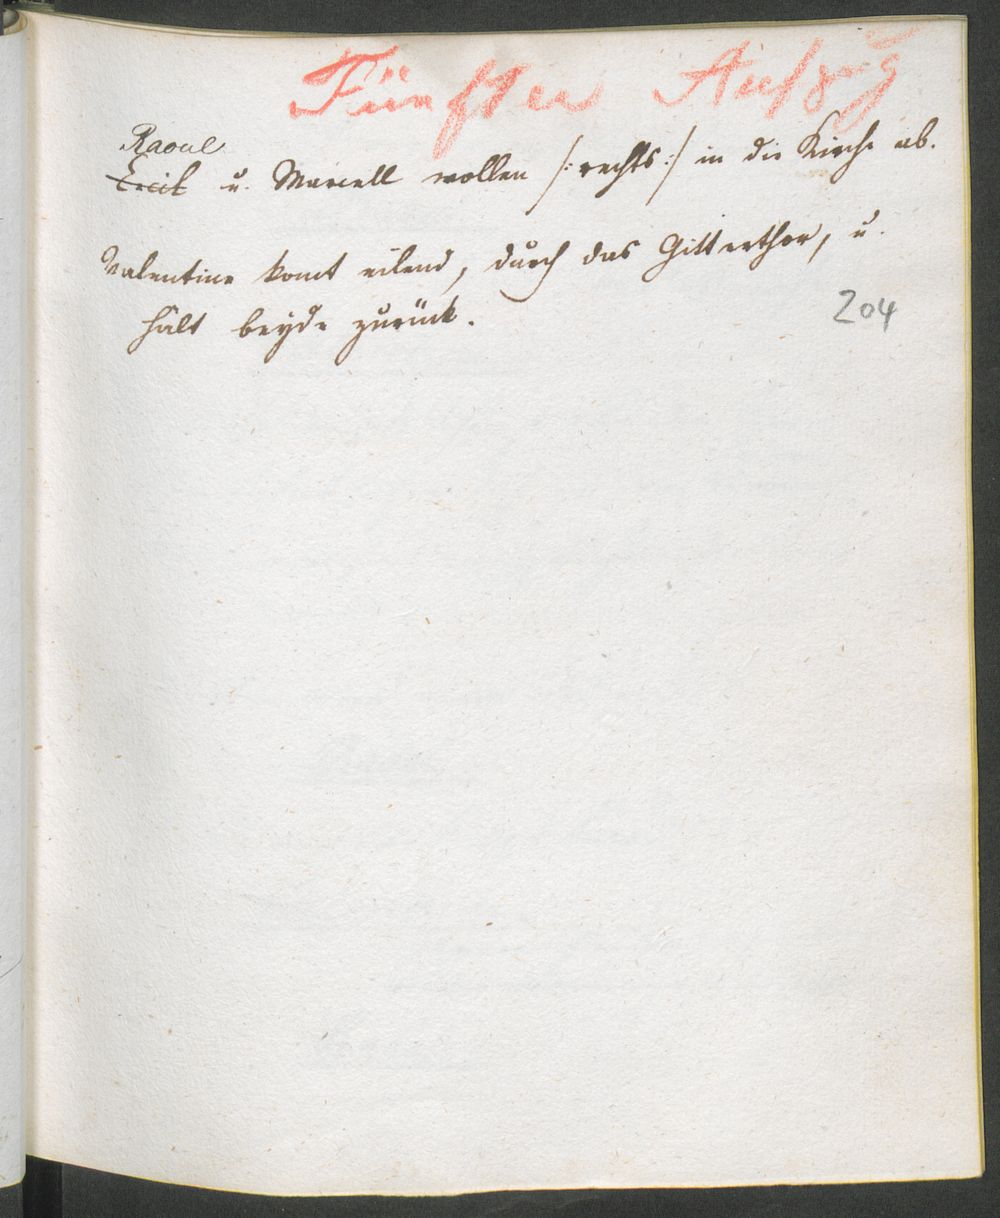 Fünfter Aufzug
Raoul
Erik u. Marcell wollen /: rechts :/ in die Kirche ab.
Valentine komt eilend, durch das Gitterthor, u.
hält beyde zurück.
204